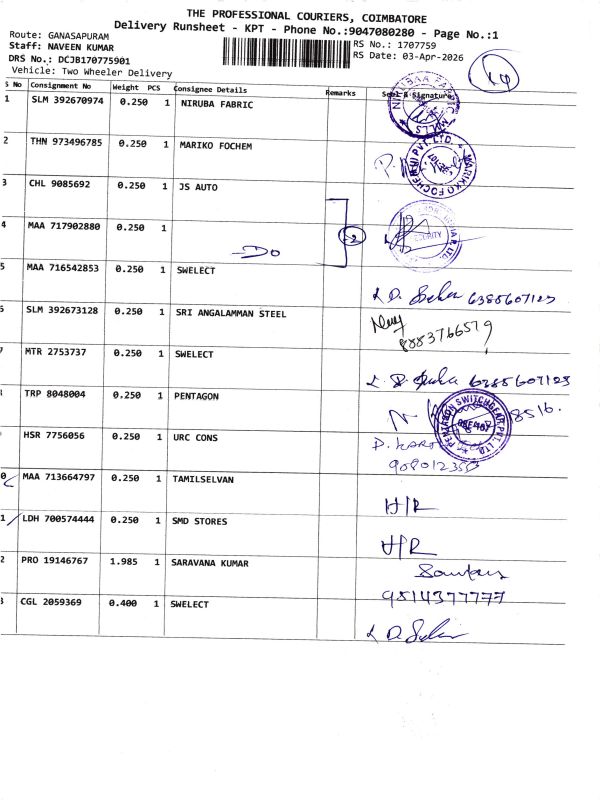 THE PROFESSIONAL COURIERS, COIMBATORE
Delivery Runsheet - KPT - Phone No.:9047080280 - Page No.:1
Route: GANASAPURAM
Staff: NAVEEN KUMAR
RS No.: 1707759
DRS No.: DCJB170775901
RS Date: 03-Apr-2026
Vehicle: Two Wheeler Delivery
S No Consignment No Weight PCS Consignee Details Remarks Seal & Signature
1 SLM 392670974 0.250 1 NIRUBA FABRIC
2 THN 973496785 0.250 1 MARIKO FOCHEM
3 CHL 9085692 0.250 1 JS AUTO
4 MAA 717902880 0.250 1 -Do
SECURITY
5 MAA 716542853 0.250 1 SWELECT 6385607123
SLM 392673128 0.250 1 SRI ANGALAMMAN STEEL
MTR 2753737 0.250 1 SWELECT 6385607123
TRP 8048004 0.250 1 PENTAGON 8516.
PENTAGON SWITCHGEAR PVT. LTD.
HSR 7756056 0.250 1 URC CONS
0 MAA 713664797 0.250 1 TAMILSELVAN H/R
1 LDH 700574444 0.250 1 SMD STORES H/R
2 PRO 19146767 1.985 1 SARAVANA KUMAR
9514377777
3 CGL 2059369 0.400 1 SWELECT